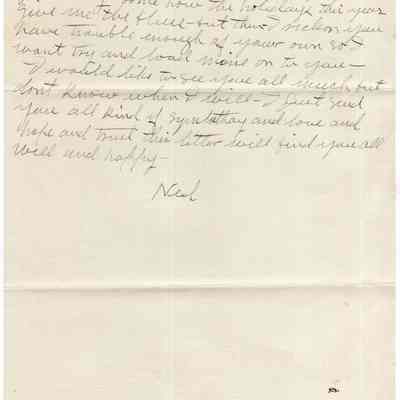 some how the holidays this year
give me the blues - but then I reckon you
have trouble enough of your own so I
wont try and load mine on to you -
I would like to see you all much but
dont know when I will - I just send
you all kind of sympathy and love and
hope and trust this letter will find you all
well and happy -
Ned